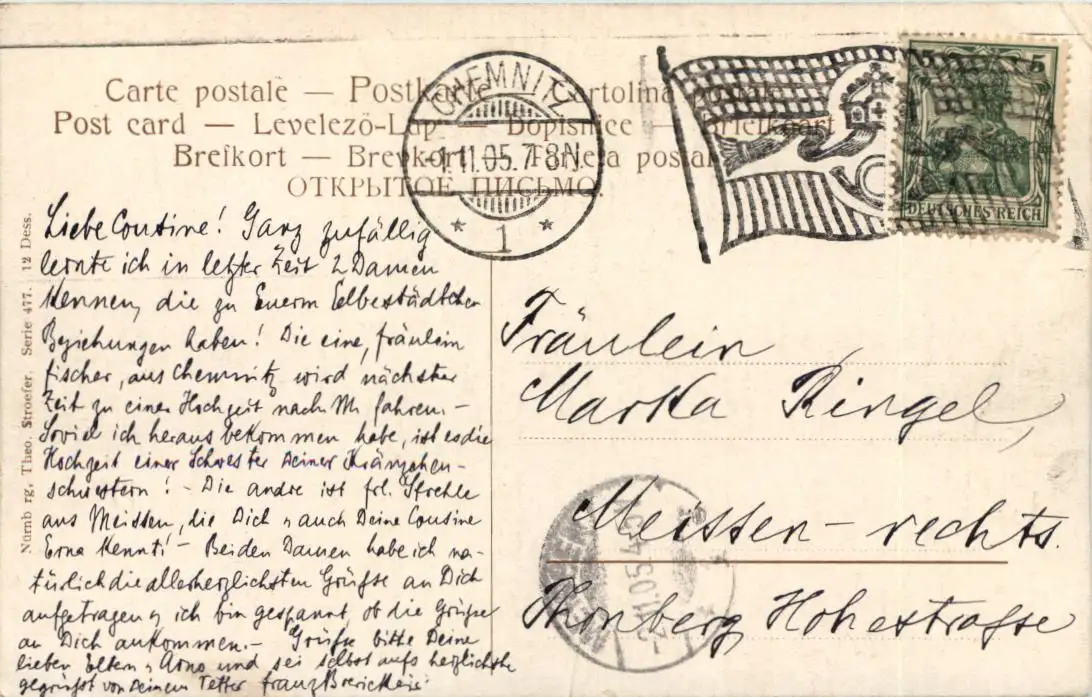 Carte postale — Postkarte — Cartolina postale
Post card — Levelező-Lap — Dopisnice — Briefkaart
Brefkort — Brevkort — Tarjeta postal
ОТКРЫТОЕ ПИСЬМО.
CHEMNITZ
1.11.05.7-8N.
* 1 *
5 5
DEUTSCHES REICH
Nürnb rg, Theo. Stroefer. Serie 477. 12 Dess.
Liebe Cousine! Ganz zufällig
lernte ich in letzter Zeit 2 Damen
kennen, die zu Euerm Elbestädtchen
Beziehungen haben! Die eine, Fräulein
Fischer, aus Chemnitz wird nächster
Zeit zu einer Hochzeit nach M. fahren. –
Soviel ich heraus bekommen habe, ist es die
Hochzeit einer Schwester Deiner Kränzchen-
schwestern! – Die andre ist Frl.
aus Meissen, die Dich u auch Deine Cousine
Erna kennt! – Beiden Damen habe ich na-
türlich die allerherzlichsten Grüsse an Dich
aufgetragen u ich bin gespannt, ob die Grüsse
an Dich ankommen. – Grüsse bitte Deine
lieben Eltern u Arno und sei selbst aufs herzlichste
gegrüsst von Deinem Vetter Franz
Fräulein
Marka Ringel,
Meissen – rechts.
Hohestrasse